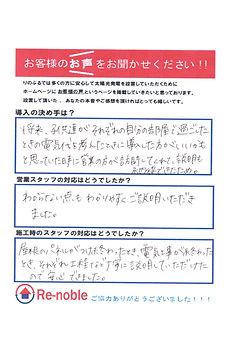 お客様のお声をお聞かせください!!
りのぶるでは多くの方に安心して太陽光発電を設置していただくために
ホームページにお客様の声というページを掲載していきたいと思っております。
設置して頂いた、あなたの本音やご感想を頂ければとっても嬉しいです。
導入の決め手は?
将来、子供達がそれぞれの自分の部屋で過ごした
ときの電気代を考えたときに導入した方がいいかも
と思っていた時に営業の方が訪問してくれて、説明も
営業スタッフの対応はどうでしたか?
わからない点もわかりやすくご説明いただき
ました。
施工時のスタッフの対応はどうでしたか?
屋根のパネルがつけ終わったとき、電気工事が終わった
とき、それぞれ工程など丁寧に説明していただけた
ので安心できました。
Re-noble
ご協力ありがとうございました!!!